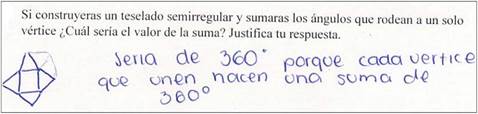 Si construyeras un teselado semirregular y sumaras los ángulos que rodean a un solo
vértice ¿Cuál sería el valor de la suma? Justifica tu respuesta.
Seria de 360° porque cada vertice
que unen hacen una suma de
360°